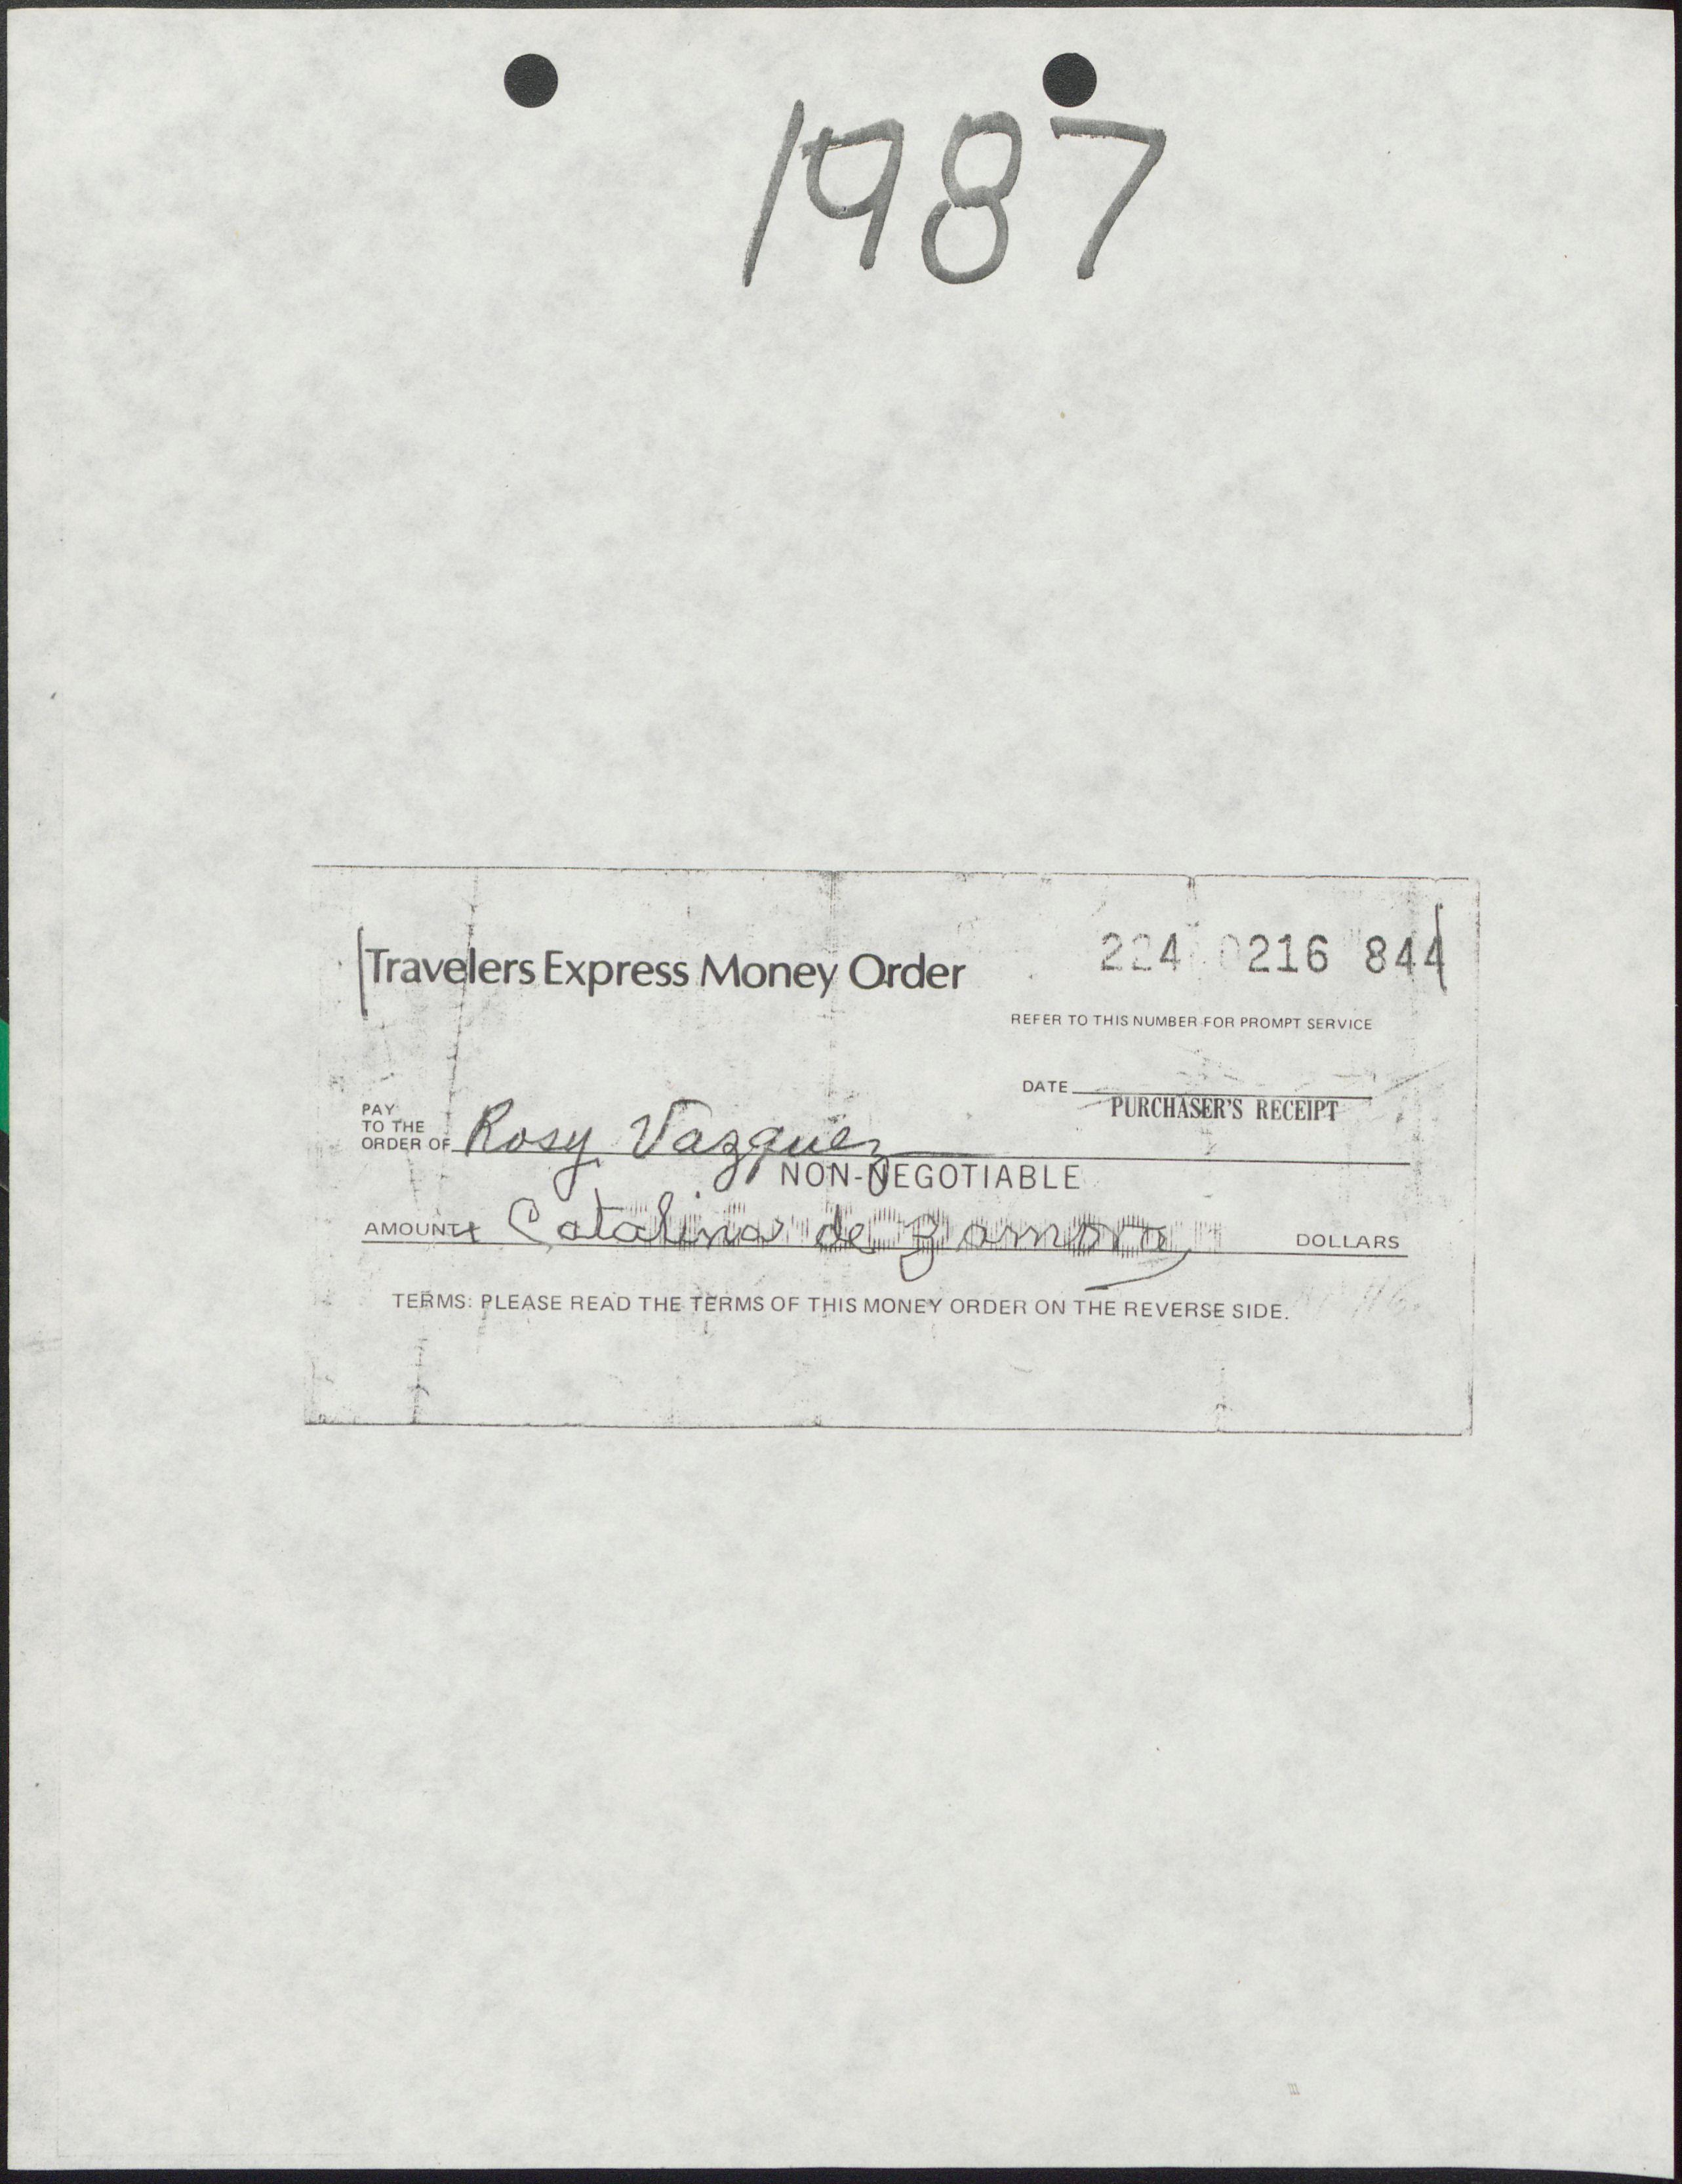 1987
Travelers Express Money Order
224 0216 844
REFER TO THIS NUMBER FOR PROMPT SERVICE
DATE
PURCHASER'S RECEIPT
PAY
TO THE
ORDER OF Rosy Vazquez
NON-NEGOTIABLE
AMOUNT Catalina de Zamora DOLLARS
TERMS: PLEASE READ THE TERMS OF THIS MONEY ORDER ON THE REVERSE SIDE.